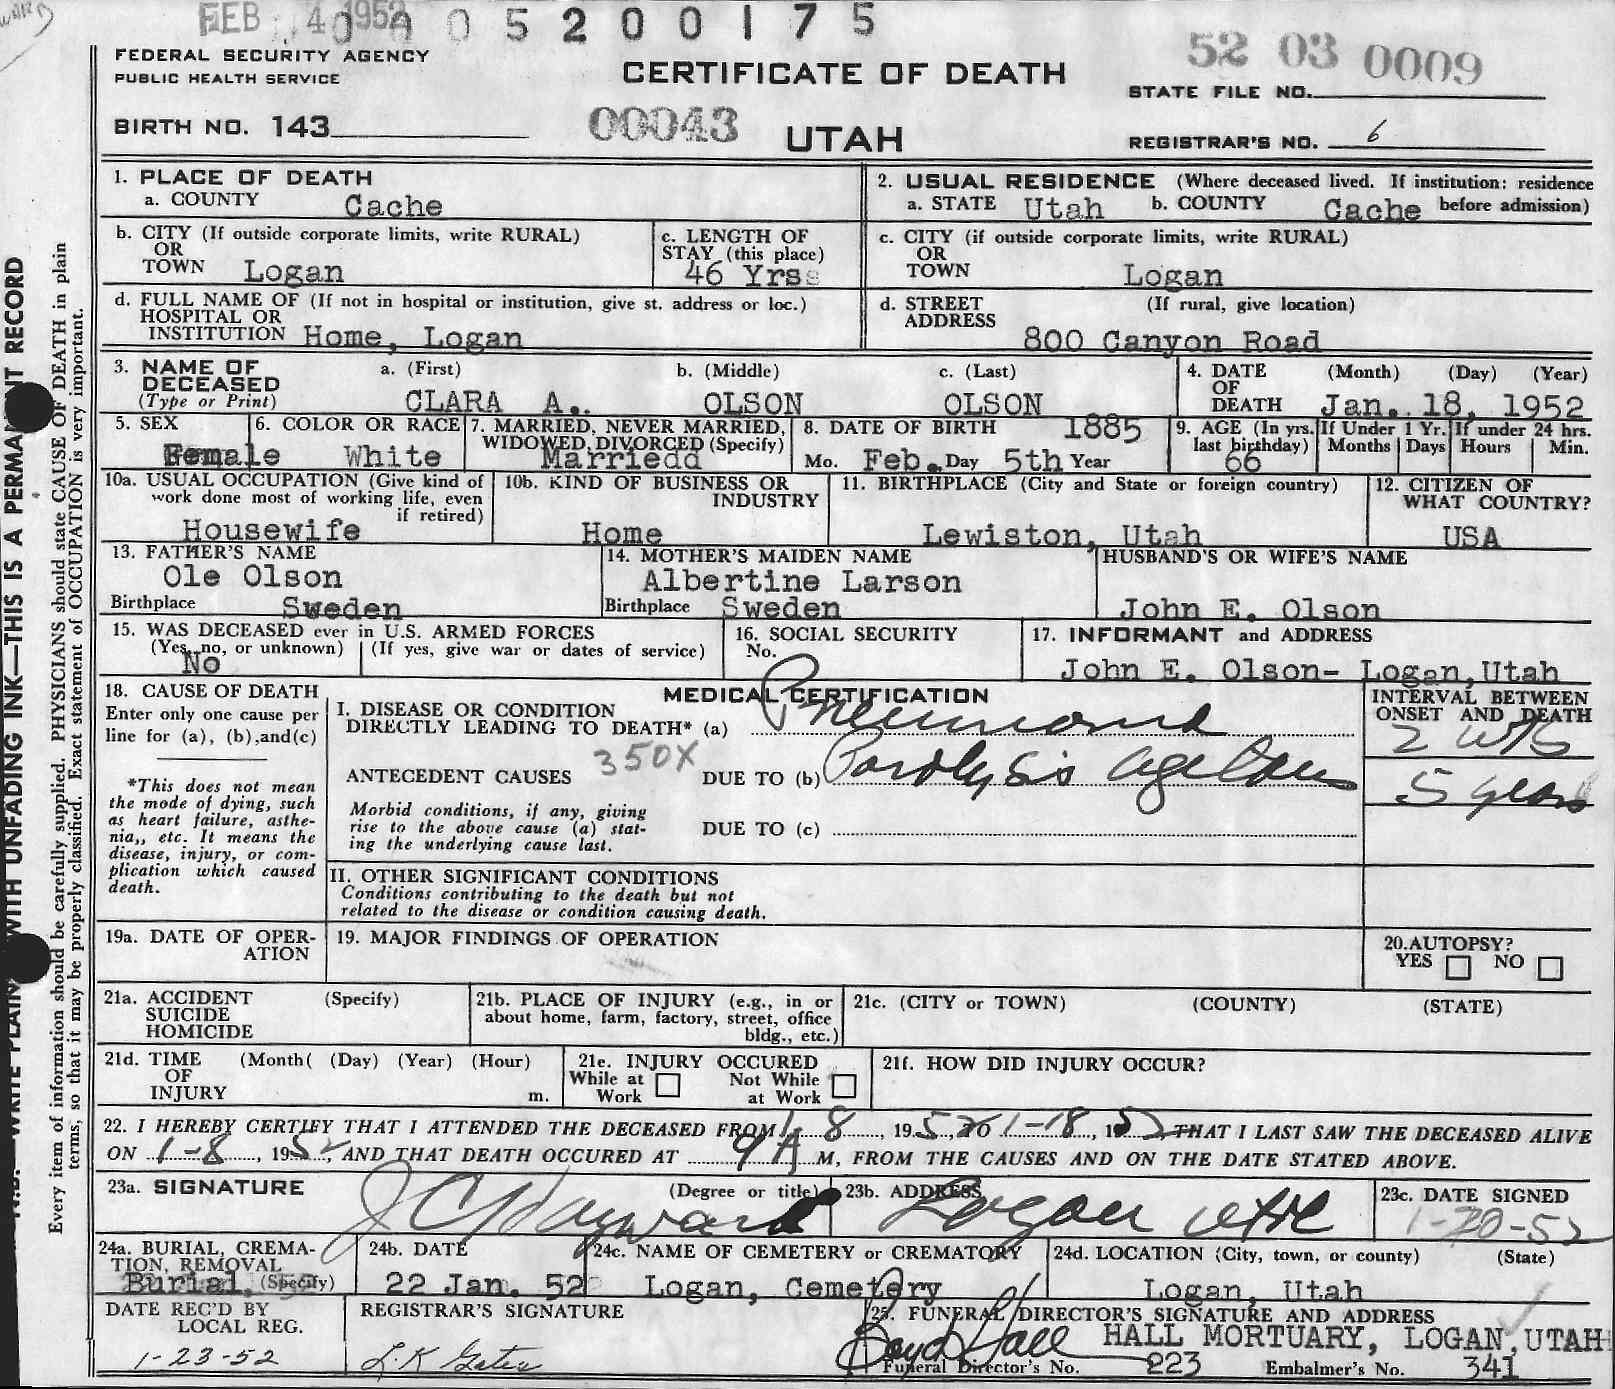 FEB 4 1952 0 0 5 2 0 0 1 7 5
FEDERAL SECURITY AGENCY
PUBLIC HEALTH SERVICE
CERTIFICATE OF DEATH
52 03 0009
STATE FILE NO.
BIRTH NO. 143
00043
UTAH
REGISTRAR'S NO. 6
1. PLACE OF DEATH
a. COUNTY Cache
2. USUAL RESIDENCE (Where deceased lived. If institution: residence
a. STATE Utah b. COUNTY Cache before admission)
b. CITY (If outside corporate limits, write RURAL)
OR
TOWN Logan
c. LENGTH OF
STAY (this place)
46 Yrss
c. CITY (if outside corporate limits, write RURAL)
OR
TOWN Logan
d. FULL NAME OF (If not in hospital or institution, give st. address or loc.)
HOSPITAL OR
INSTITUTION Home, Logan
d. STREET (If rural, give location)
ADDRESS
800 Canyon Road
3. NAME OF a. (First) b. (Middle) c. (Last)
DECEASED
(Type or Print) CLARA A.. OLSON OLSON
4. DATE (Month) (Day) (Year)
OF
DEATH Jan. 18, 1952
5. SEX
Female
6. COLOR OR RACE
White
7. MARRIED, NEVER MARRIED,
WIDOWED, DIVORCED (Specify)
Marriedd
8. DATE OF BIRTH 1885
Mo. Feb. Day 5th Year
9. AGE (In yrs.
last birthday)
66
If Under 1 Yr.
Months Days
If under 24 hrs.
Hours Min.
10a. USUAL OCCUPATION (Give kind of
work done most of working life, even
if retired)
Housewife
10b. KIND OF BUSINESS OR
INDUSTRY
Home
11. BIRTHPLACE (City and State or foreign country)
Lewiston, Utah
12. CITIZEN OF
WHAT COUNTRY?
USA
13. FATHER'S NAME
Ole Olson
Birthplace Sweden
14. MOTHER'S MAIDEN NAME
Albertine Larson
Birthplace Sweden
HUSBAND'S OR WIFE'S NAME
John E. Olson
15. WAS DECEASED ever in U.S. ARMED FORCES
(Yes, no, or unknown) (If yes, give war or dates of service)
No
16. SOCIAL SECURITY
No.
17. INFORMANT and ADDRESS
John E. Olson- Logan,Utah
18. CAUSE OF DEATH
Enter only one cause per
line for (a), (b),and(c)
*This does not mean
the mode of dying, such
as heart failure, asthe-
nia,, etc. It means the
disease, injury, or com-
plication which caused
death.
MEDICAL CERTIFICATION
I. DISEASE OR CONDITION
DIRECTLY LEADING TO DEATH* (a) Pneumonia
350X
ANTECEDENT CAUSES DUE TO (b) Paralysis agitans
Morbid conditions, if any, giving
rise to the above cause (a) stat-
ing the underlying cause last.
DUE TO (c)
INTERVAL BETWEEN
ONSET AND DEATH
2 wks
5 years
II. OTHER SIGNIFICANT CONDITIONS
Conditions contributing to the death but not
related to the disease or condition causing death.
19a. DATE OF OPER-
ATION
19. MAJOR FINDINGS OF OPERATION
20.AUTOPSY?
YES NO
21a. ACCIDENT (Specify)
SUICIDE
HOMICIDE
21b. PLACE OF INJURY (e.g., in or
about home, farm, factory, street, office
bldg., etc.)
21c. (CITY or TOWN) (COUNTY) (STATE)
21d. TIME (Month( (Day) (Year) (Hour)
OF
INJURY m.
21e. INJURY OCCURED
While at Work
Not While at Work
21f. HOW DID INJURY OCCUR?
22. I HEREBY CERTIFY THAT I ATTENDED THE DECEASED FROM 1-8, 1952, TO 1-18, 1952 THAT I LAST SAW THE DECEASED ALIVE
ON 1-8, 1952, AND THAT DEATH OCCURED AT 9 A M, FROM THE CAUSES AND ON THE DATE STATED ABOVE.
23a. SIGNATURE (Degree or title)
J C Hayward
23b. ADDRESS
Logan Utah
23c. DATE SIGNED
1-20-52
24a. BURIAL, CREMA-
TION, REMOVAL
Burial, (Specify)
24b. DATE
22 Jan. 52
24c. NAME OF CEMETERY or CREMATORY
Logan, Cemetery
24d. LOCATION (City, town, or county) (State)
Logan, Utah
DATE REC'D BY
LOCAL REG.
1-23-52
REGISTRAR'S SIGNATURE
L.K Gates
25. FUNERAL DIRECTOR'S SIGNATURE AND ADDRESS
Boyd Hall HALL MORTUARY, LOGAN,UTAH
Funeral Director's No. 223 Embalmer's No. 341
Every item of information should be carefully supplied. PHYSICIANS should state CAUSE OF DEATH in plain
terms, so that it may be properly classified. Exact statement of OCCUPATION is very important.
WITH UNFADING INK—THIS IS A PERMANENT RECORD